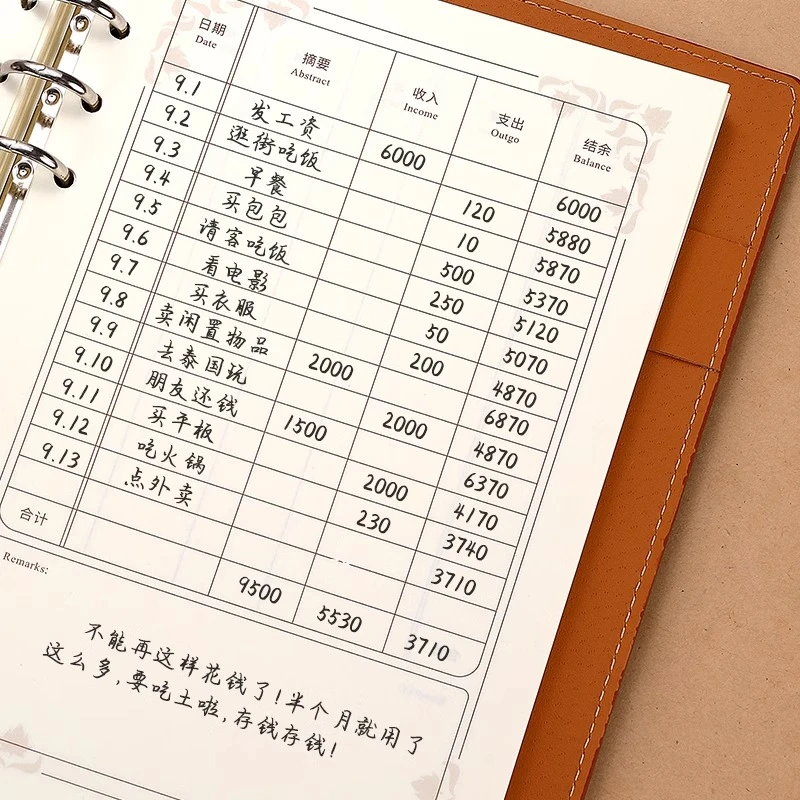 日期 摘要 收入 支出 结余
Date Abstract Income Outgo Balance
9.1 发工资 6000 6000
9.2 逛街吃饭 120 5880
9.3 早餐 10 5870
9.4 买包包 500 5370
9.5 请客吃饭 250 5120
9.6 看电影 50 5070
9.7 买衣服 200 4870
9.8 卖闲置物品 2000 6870
9.9 去泰国玩 2000 4870
9.10 朋友还钱 1500 6370
9.11 买平板 2000 4170
9.12 吃火锅 230 3740
9.13 点外卖 3710
合计 9500 5530 3710
Remarks:
不能再这样花钱了!半个月就用了
这么多,要吃土啦,存钱存钱!